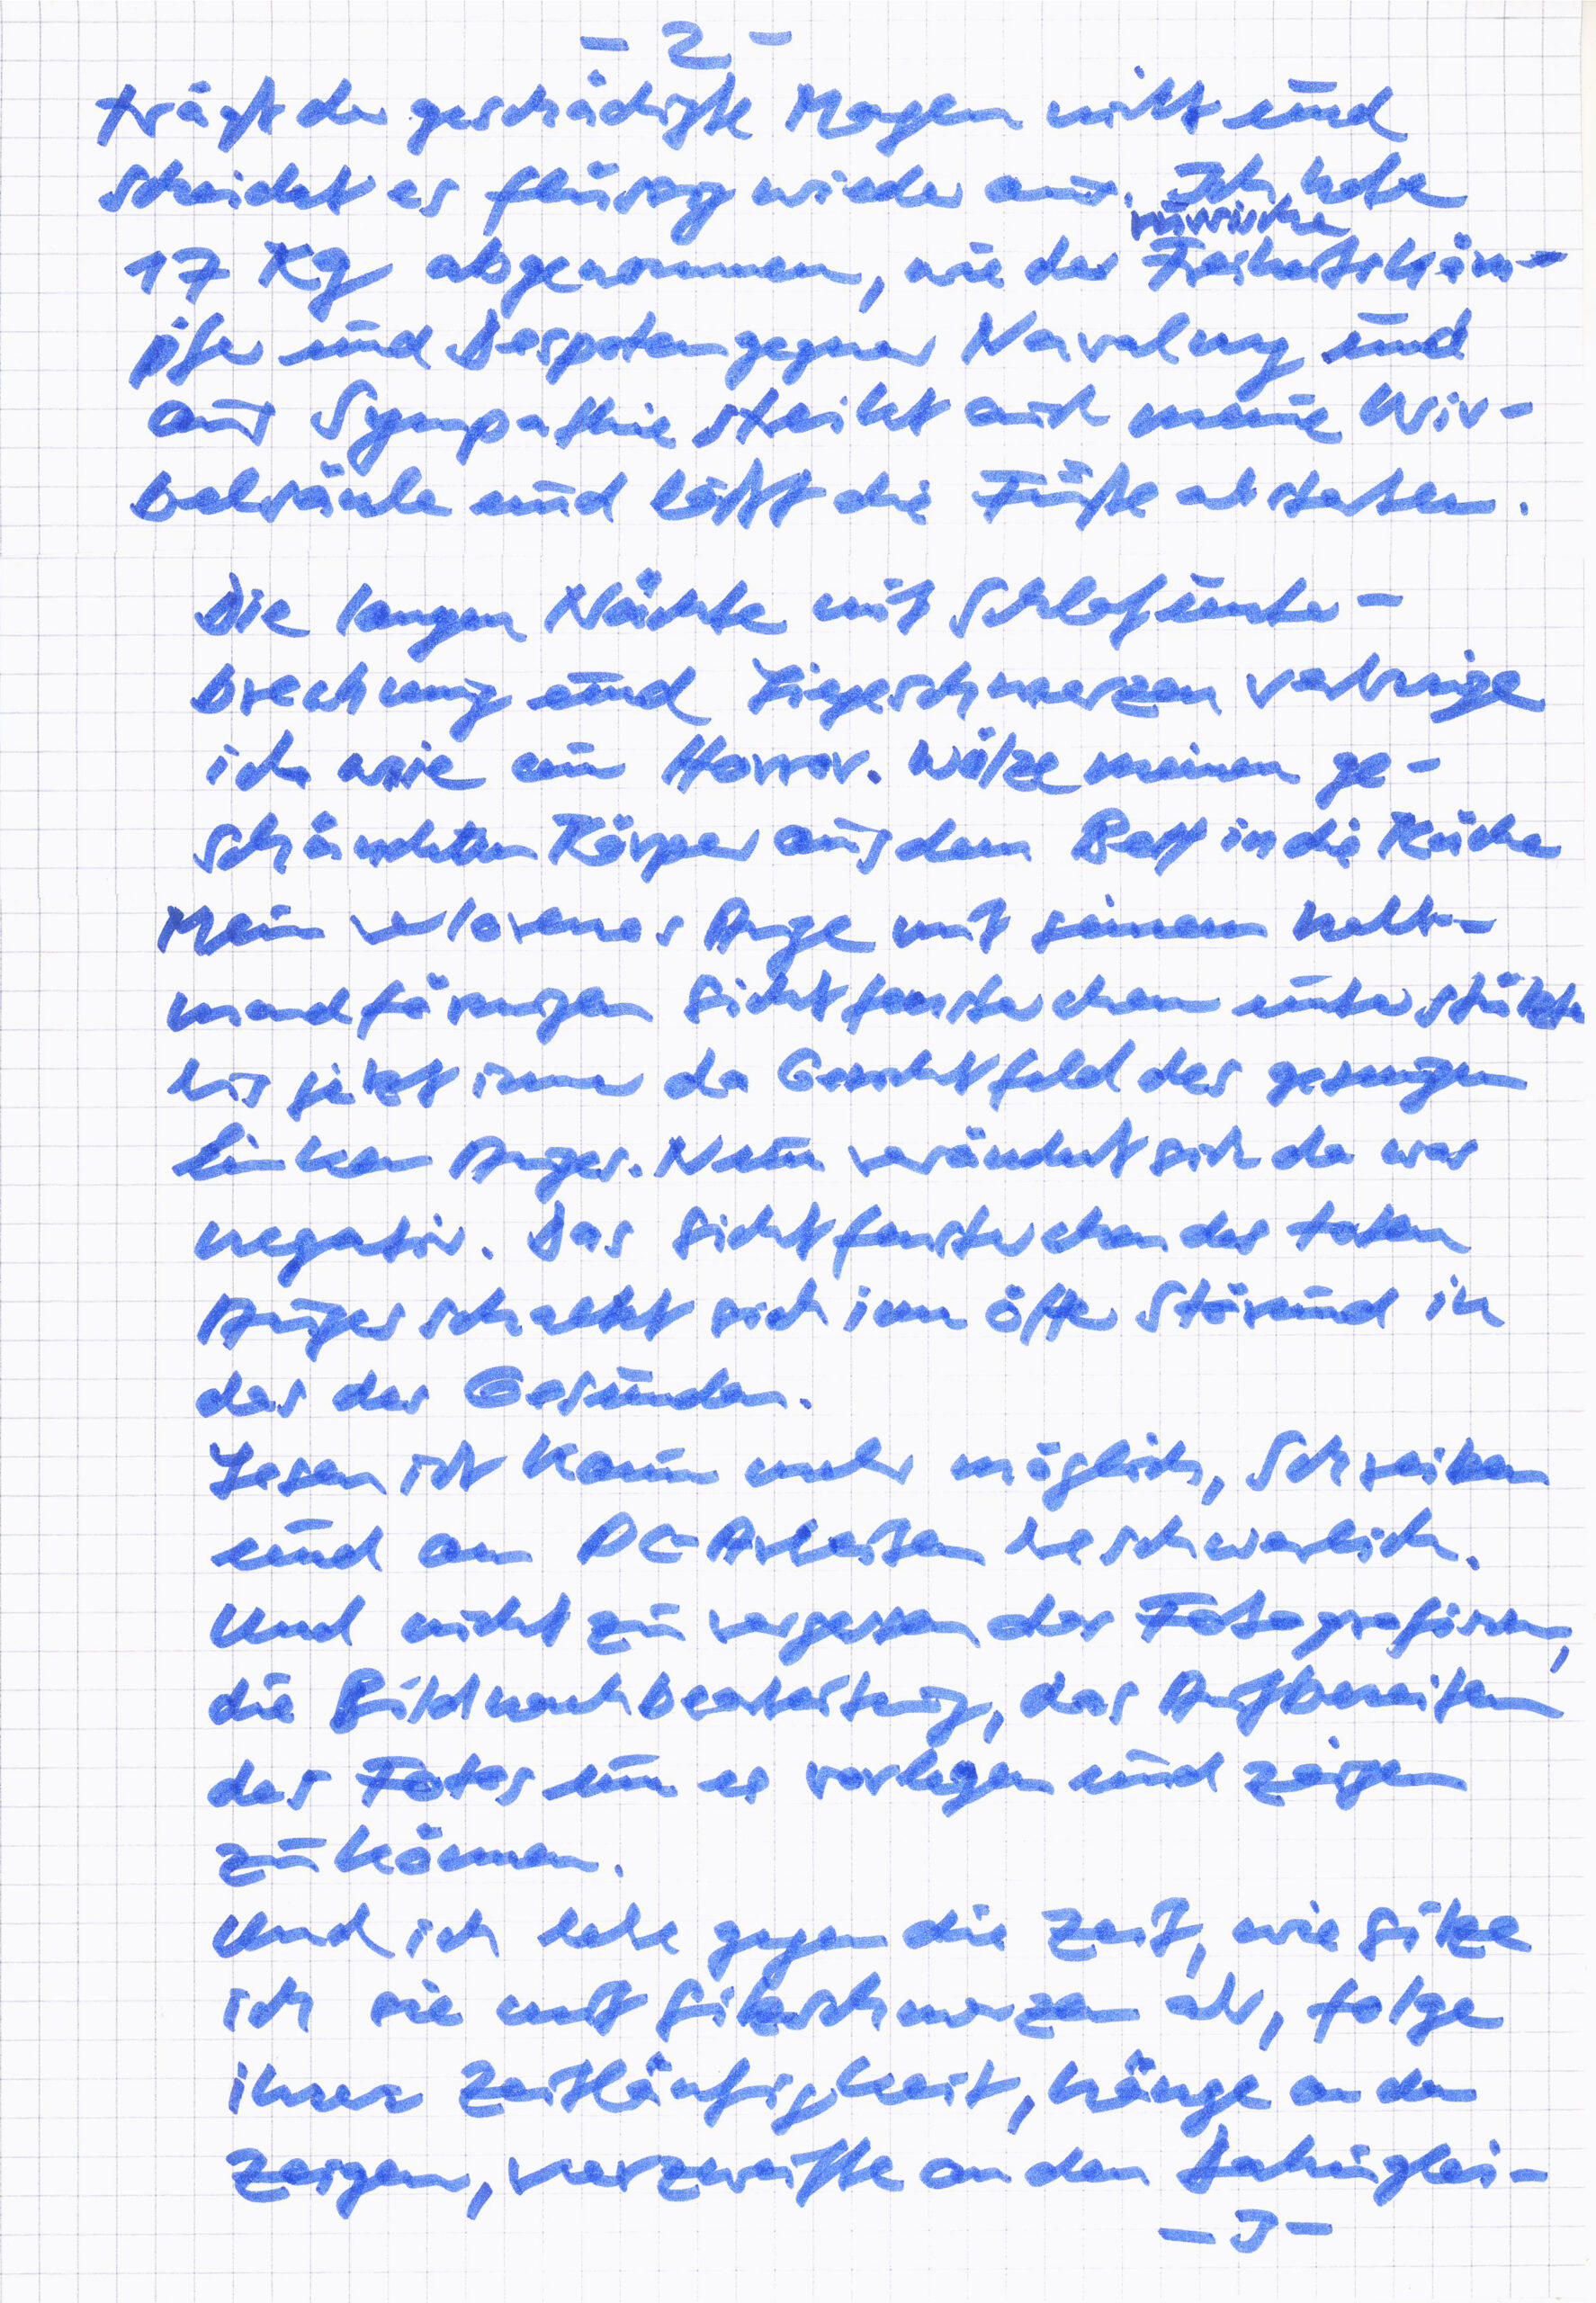 - 2 -
trägt der geschädigte Magen nicht und
scheidet es flüssig wieder aus. Ich habe
russische
17 Kg abgenommen, wie der Freiheitskäm-
pfer und Despotengegner Navalny und
aus Sympathie streikt auch meine Wir-
belsäule und läßt die Füße absterben.
Die langen Nächte mit Schlafunter-
brechung und Liegeschmerzen verbringe
ich wie ein Horror. Wälze meinen ge-
schändeten Körper aus dem Bett in die Küche
Mein verlorenes Auge mit seinem halb-
mondförmigen Sichtfensterchen unterstützte
bis jetzt immer das Gesichtfeld des gesunden
linken Auges. Nun verändert sich da was
negativ. Das Sichtfensterchen des toten
Auges schaltet sich immer öfter störend in
das des Gesunden.
Lesen ist kaum mehr möglich, Schreiben
und am PC-Arbeiten beschwerlich.
Und nicht zu vergessen das Fotografieren,
die Bildnachbearbeitung, das Aufbereiten
des Fotos um es vorlegen und zeigen
zu können.
Und ich lebe gegen die Zeit, wie sitze
ich sie mit Sitzschmerzen ab, folge
ihrer Zeitläufigkeit, hänge an den
Zeigern, verzweifle an den Dahinglei-
- 3 -